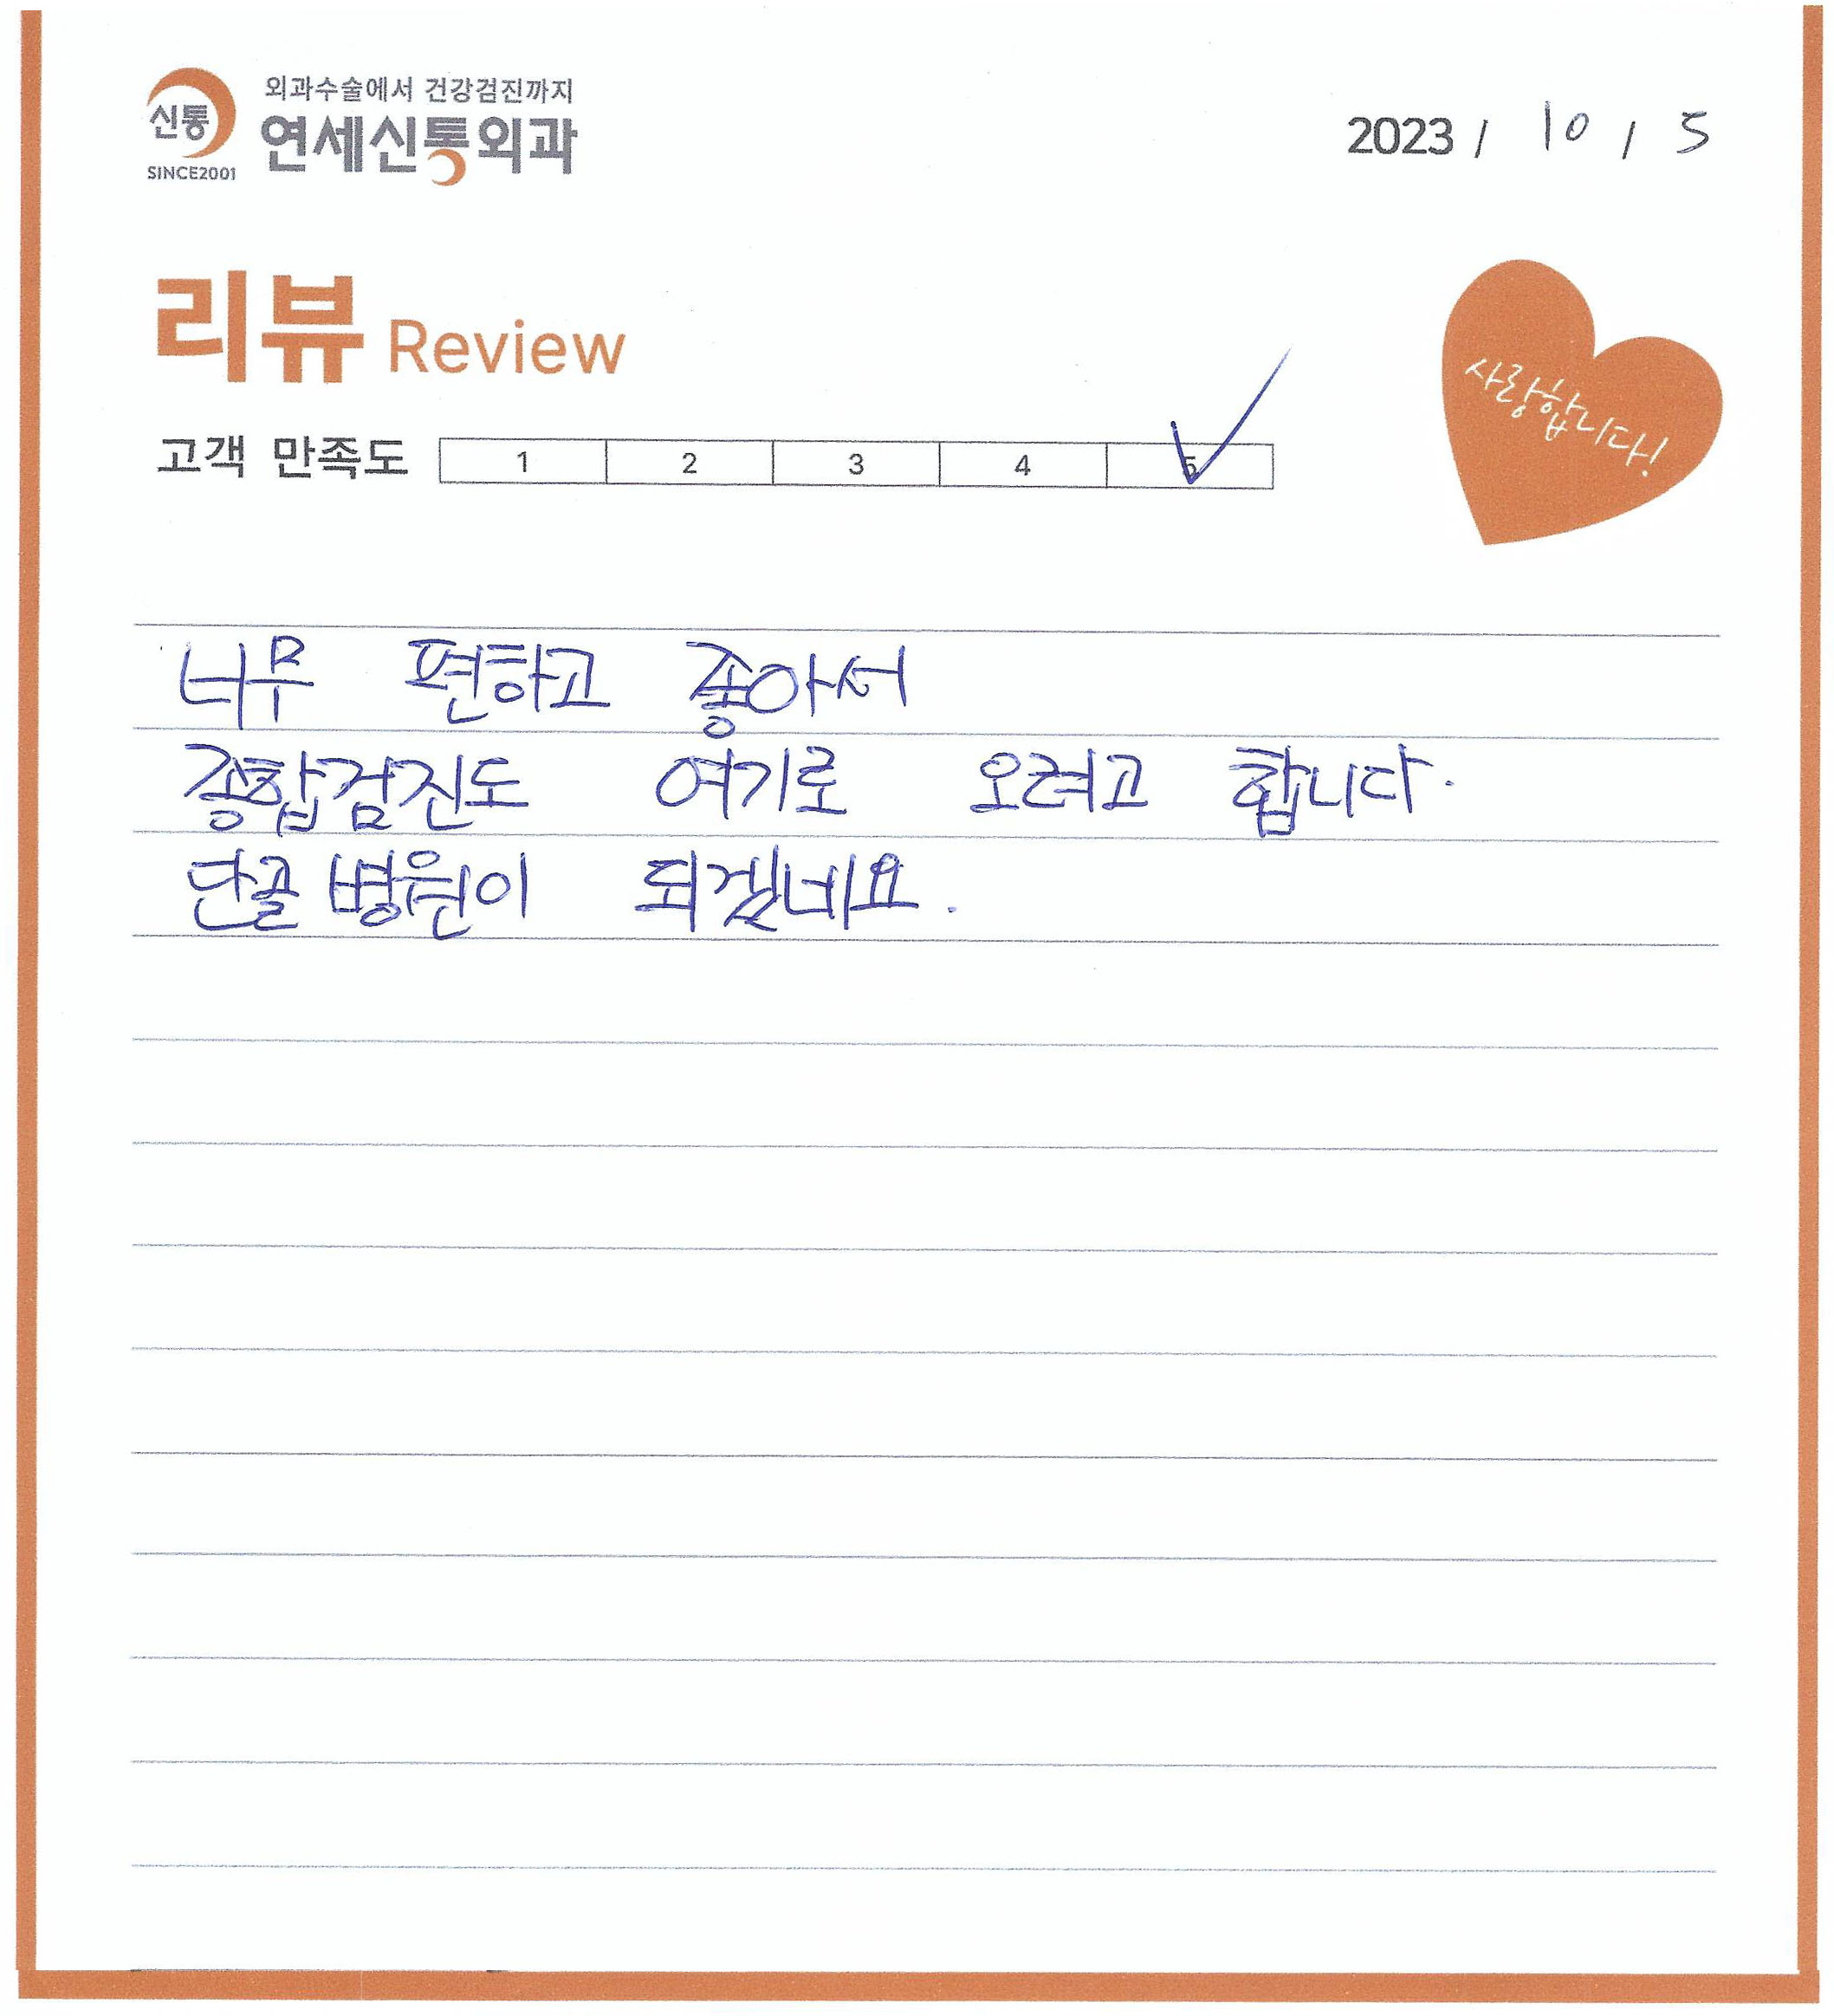 신통
SINCE2001
외과수술에서 건강검진까지
연세신통외과
2023 / 10 / 5
리뷰 Review
사랑합니다!
고객 만족도 1 2 3 4 5
너무 편하고 좋아서
종합검진도 여기로 오려고 합니다.
단골 병원이 되겠네요.